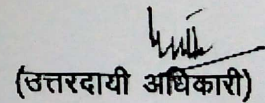 (उत्तरदायी अधिकारी)